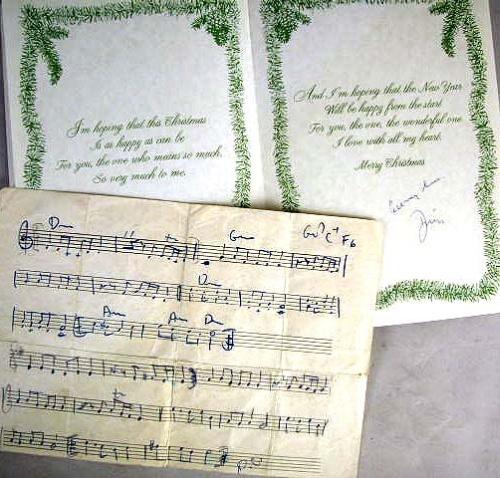 I'm hoping that this Christmas
Is as happy as can be
For you, the one who means so much,
So very much to me.
And I'm hoping that the New Year
Will be happy from the start
For you, the one, the wonderful one
I love with all my heart.
Merry Christmas
Jim
Dm Gm Gm7 C+ F6
Dm
Am Am Dm